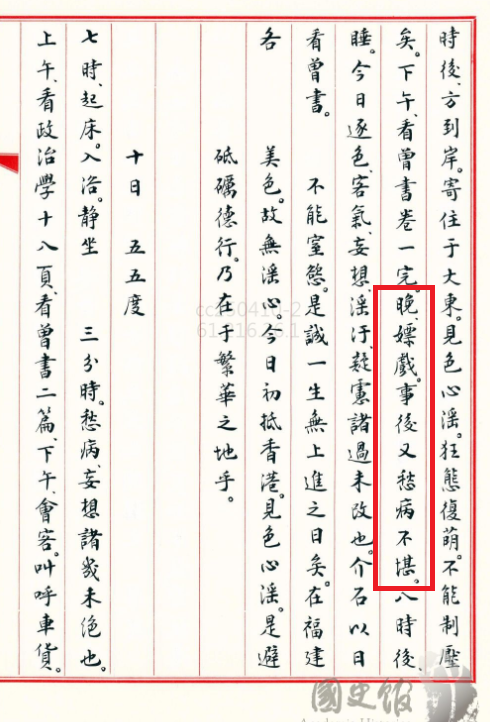 時後、方到岸。寄住于大東。見色心淫。狂態復萌。不能制壓
矣。下午、看曾書卷一完。晚、嫖戲。事後又愁病不堪。八時後、
睡。今日逐色、客氣、妄想、淫汙、疑慮諸過未改也。介石以日
看曾書。 不能窒慾。是誠一生無上進之日矣。在福建
各 美色。故無淫心。今日初抵香港。見色心淫。是避
砥礪德行。乃在于繁華之地乎。
十日 五五度
七時、起床。入浴。靜坐 三分時。愁病、妄想諸幾未絕也。
上午、看政治學十八頁、看曾書二篇、下午、會客。叫呼車貨。
國史館